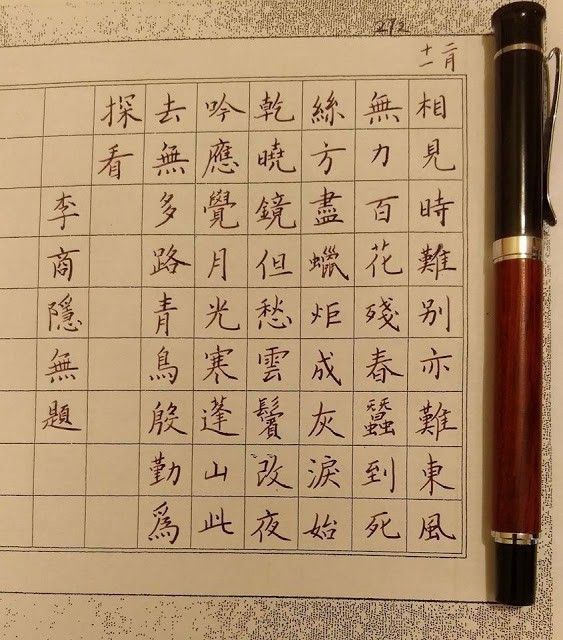 二月
十一
相見時難別亦難東風
無力百花殘春蠶到死
絲方盡蠟炬成灰淚始
乾曉鏡但愁雲鬢改夜
吟應覺月光寒蓬山此
去無多路青鳥殷勤爲
探看
李商隱無題